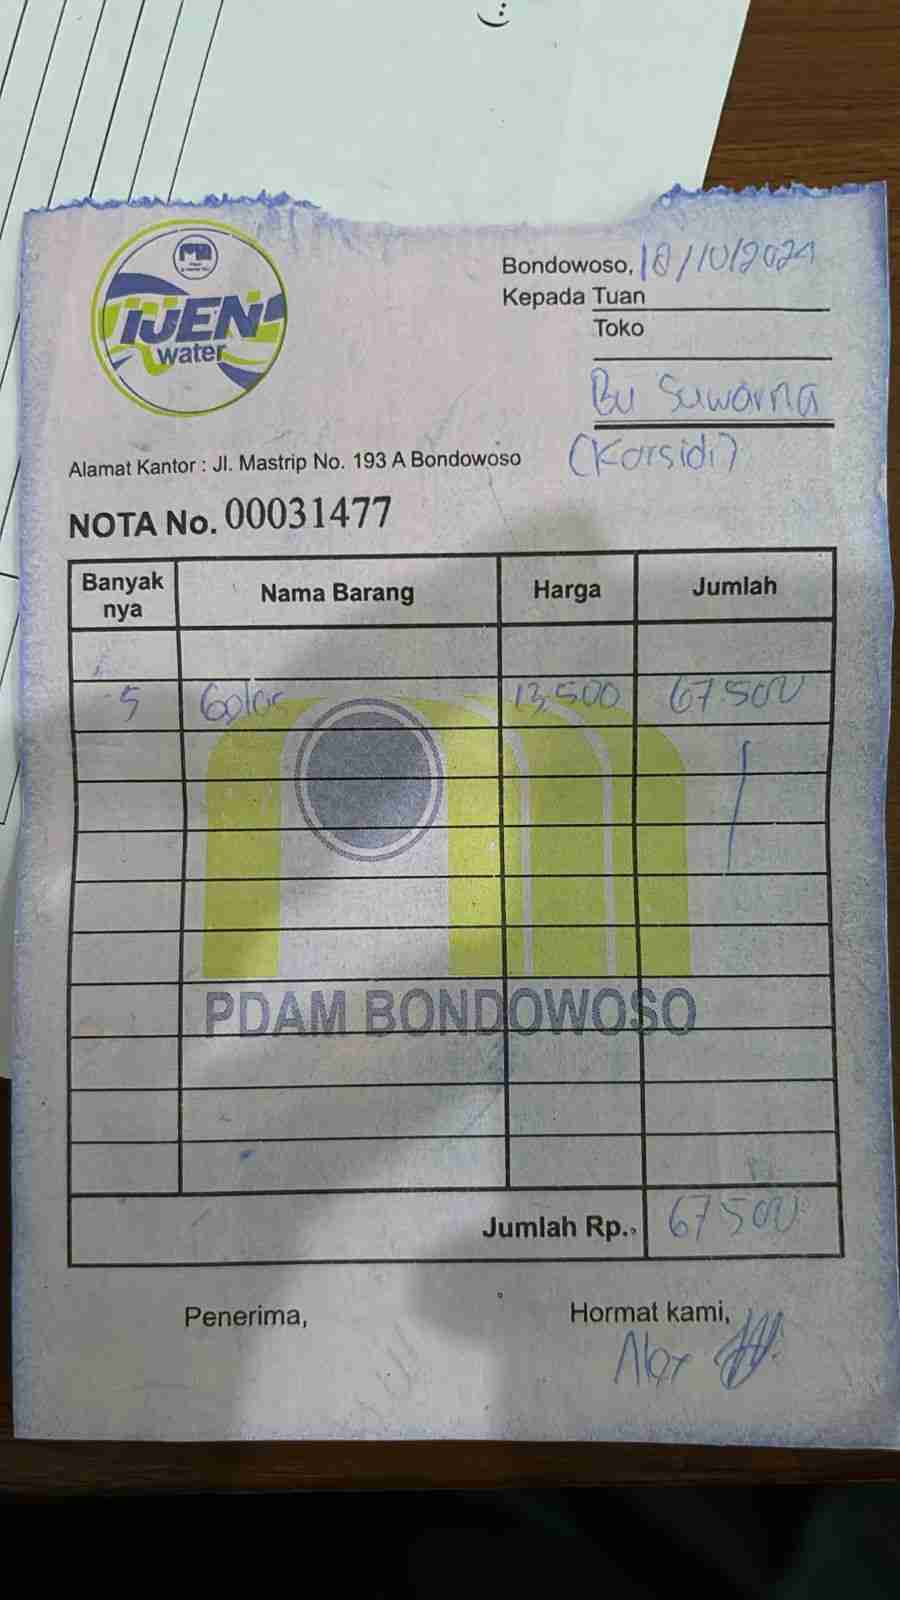 IJEN
water
Bondowoso, 18/10/2024
Kepada Tuan
Toko
Bu Suwarna
(Karsidi)
Alamat Kantor : Jl. Mastrip No. 193 A Bondowoso
NOTA No. 00031477
Banyak nya Nama Barang Harga Jumlah
5 Gelas 13.500 67.500
PDAM BONDOWOSO
Jumlah Rp.. 67.500
Penerima, Hormat kami,
Alex